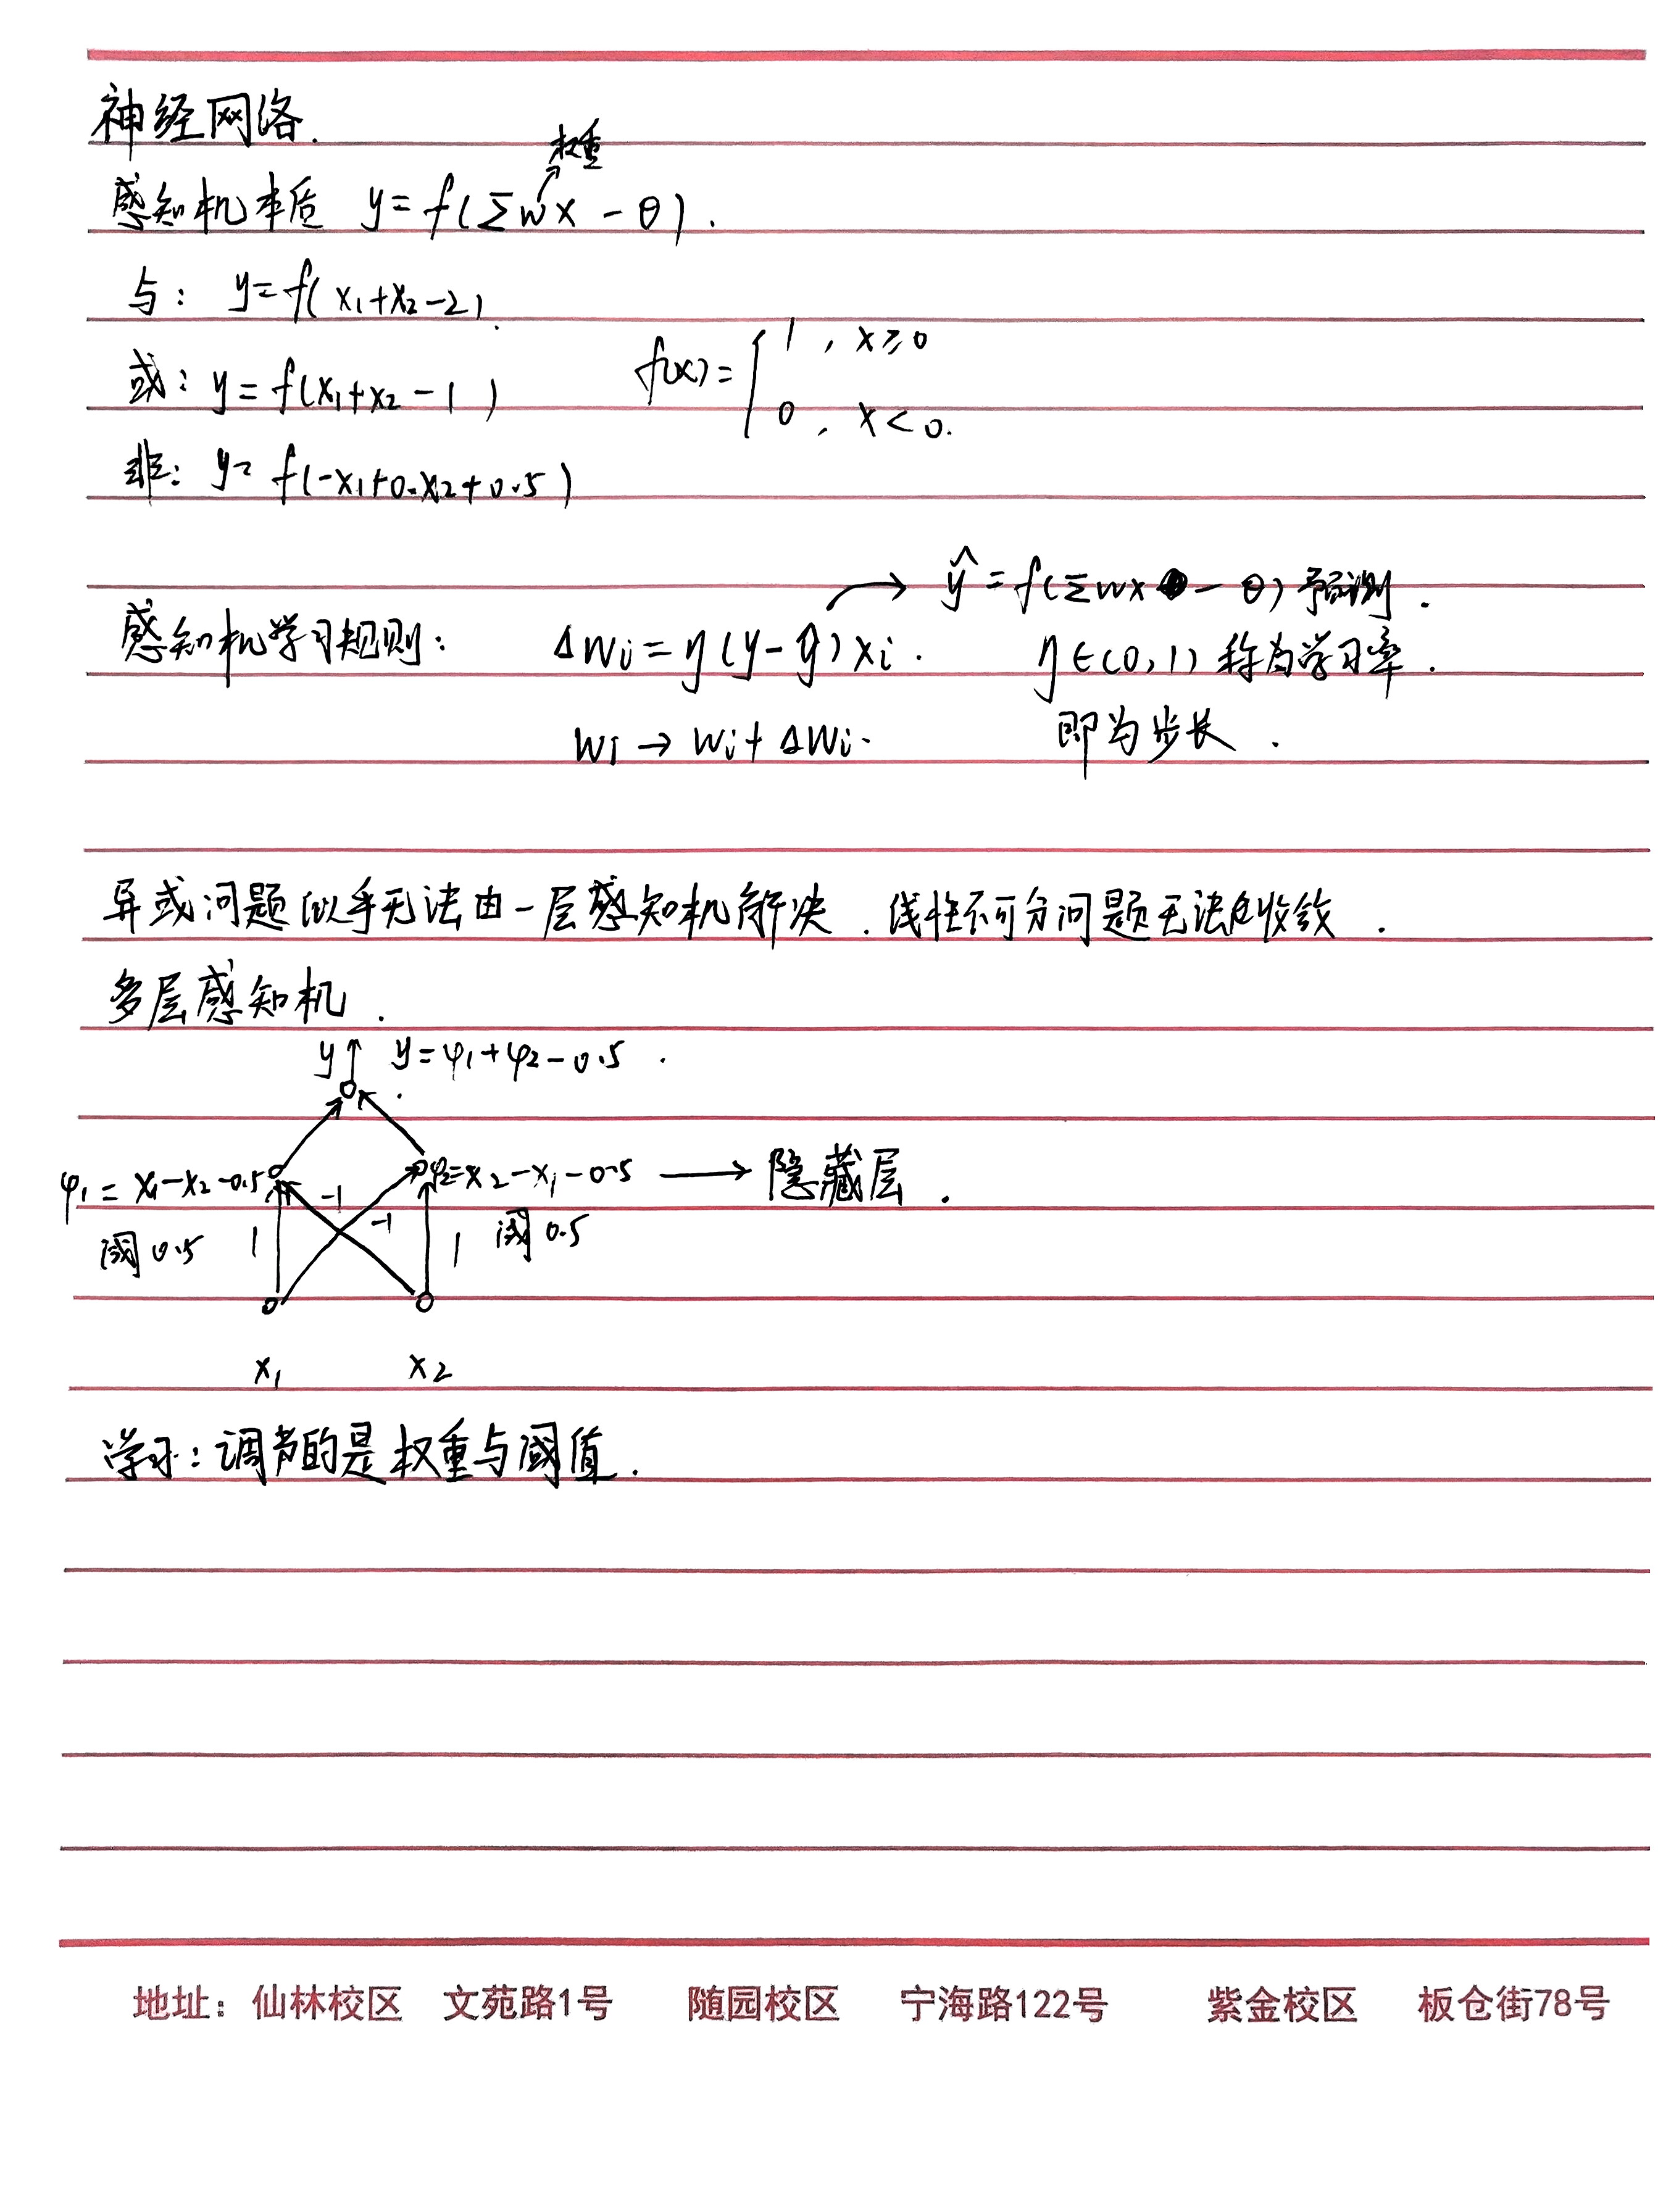 神经网络.
权重
感知机本质 y=f(Σwx-θ).
与: y=f(x₁+x₂-2).
或: y=f(x₁+x₂-1) f(x)={1, x≥0
0, x<0.
非: y=f(-x₁+0.x₂+0.5)
ŷ=f(Σwx-θ) 预测.
感知机学习规则: Δwi=η(y-ŷ)xi. η∈(0,1) 称为学习率.
wi→wi+Δwi. 即为步长.
异或问题似乎无法由一层感知机解决.线性不可分问题无法收敛.
多层感知机.
y y=φ₁+φ₂-0.5.
φ₁=x₁-x₂-0.5 φ₂=x₂-x₁-0.5 → 隐藏层.
-1 -1
阈0.5 1 1 阈0.5
x₁ x₂
学习:调节的是权重与阈值.
地址:仙林校区 文苑路1号 随园校区 宁海路122号 紫金校区 板仓街78号